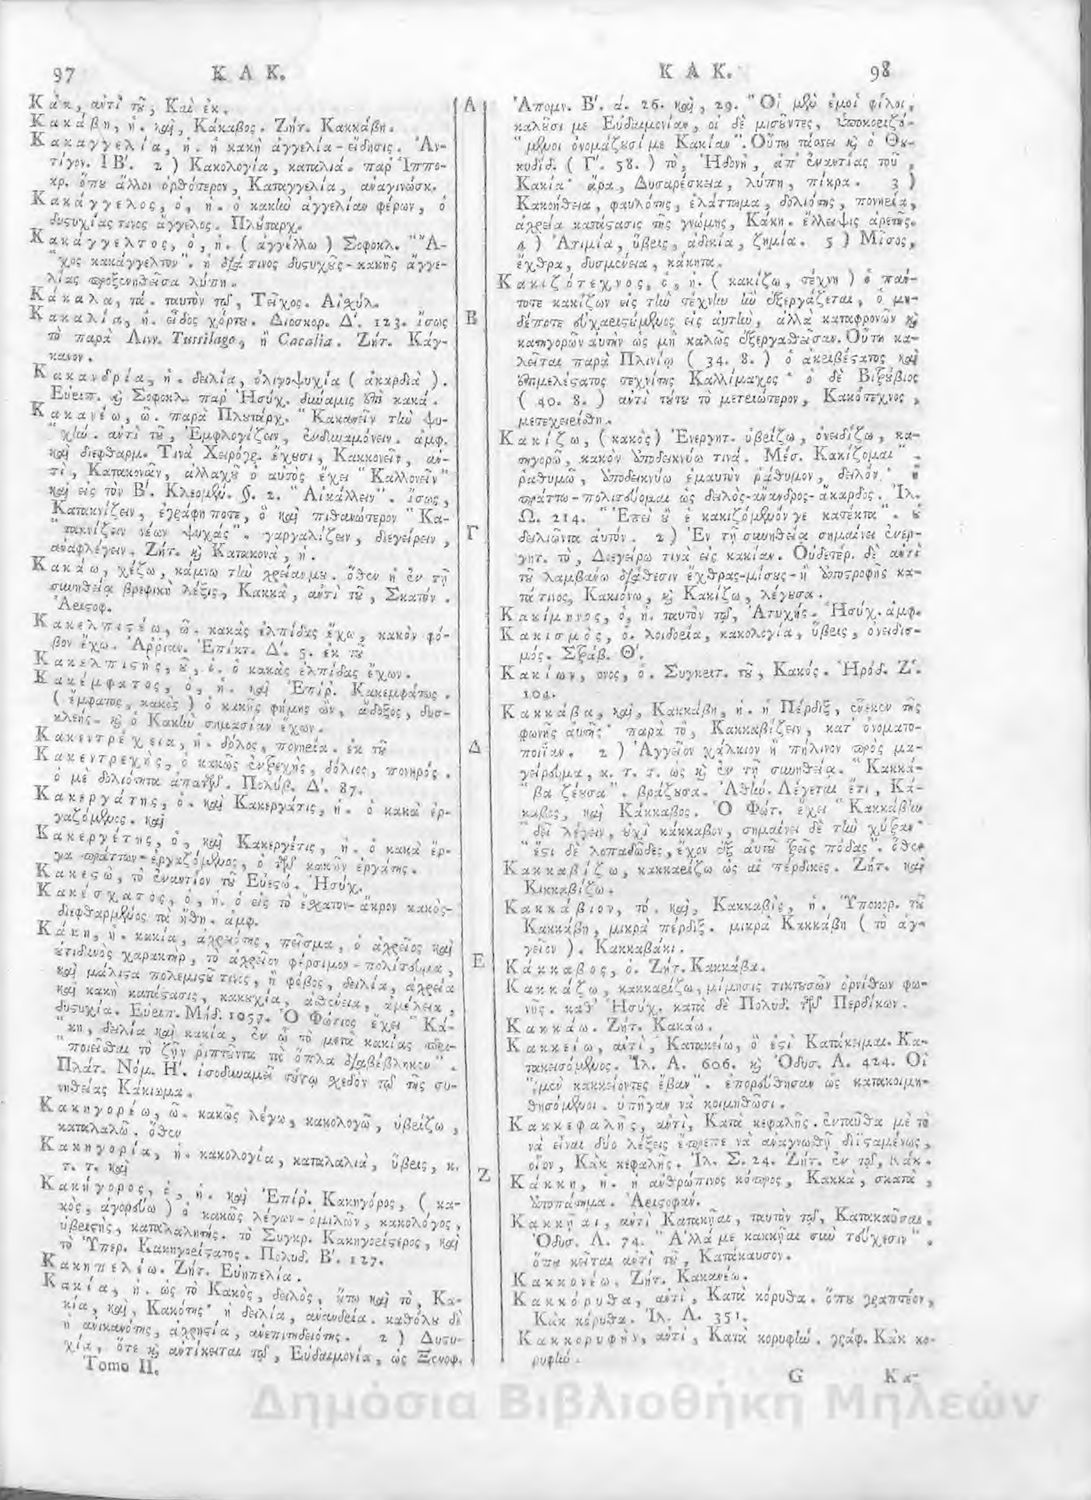 97 Κ Α Κ.
Κὰκ, ἀντὶ τοῦ, Καὶ ἐκ.
Κακάβη, ἡ. καὶ, Κάκαβος. Ζήτ. Κακκάβη.
Κακαγγελία, ἡ. ἡ κακὴ ἀγγελία-εἴδησις. Ἀν-
τίγον. ΙΒ'. 2 ) Κακολογία, καταλιά. παρ' Ἱππο-
κρ. ὅπου ἄλλοι ὀρθότερον, Καταγγελία, ἀναγινώσκ.
Κακάγγελος, ὁ, ἡ. ὁ κακὴν ἀγγελίαν φέρων, ὁ
δυςυχίας τινος ἄγγελος. Πλούταρχ.
Κακάγγελτος, ὁ, ἡ. ( ἀγγέλλω ) Σοφοκλ. "Ἄ-
"χος κακάγγελτον". ἡ διά τινος δυςυχοῦς-κακῆς ἀγγε-
λίας προξενηθεῖσα λύπη.
Κάκαλα, τά. ταυτὸν τῷ, Τεῖχος. Αἰσχύλ.
Κακαλία, ἡ. εἶδος χόρτου. Διοσκορ. Δ'. 123. ἴσως
τὸ παρὰ Λινν. Tussilago, ἢ Cacalia. Ζήτ. Κάγ-
κανον.
Κακανδρία, ἡ. δειλία, ὀλιγοψυχία ( ἀκαρδιὰ ).
Εὐριπ. καὶ Σοφοκλ. παρ' Ἡσύχ. δύναμις ἐπὶ κακά.
Κακανέω, ῶ. παρὰ Πλουτάρχ. "Κακανεῖν τὴν ψυ-
"χήν. ἀντὶ τοῦ, Ἐμφλογίζειν, ἐνδυναμόνειν. ἀμφ.
καὶ διεφθαρμ. Τινὰ Χειρόγρ. ἔχουσι, Κακκονεῖν, ἀν-
τὶ, Κατακονᾶν, ἀλλαχοῦ ὁ αὐτὸς ἔχει "Καλλονεῖν"
καὶ εἰς τὸν Β'. Κλεομέν. §. 2. "Αἰκάλλειν". ἴσως,
Κατακνίζειν, ἐγράφη ποτε, ὃ καὶ πιθανώτερον "Κα-
"τακνίζειν νέων ψυχάς". γαργαλίζειν, διεγείρειν,
ἀναφλέγειν. Ζήτ. καὶ Κατακονά, ἡ.
Κακάω, χέζω, κάμνω τὴν χρείαν μου. ὅθεν ἡ ἐν τῇ
συνηθείᾳ βρεφικὴ λέξις, Κακκά, ἀντὶ τοῦ, Σκατόν.
Ἀριςοφ.
Κακελπιςέω, ῶ. κακὰς ἐλπίδας ἔχω, κακὸν φό-
βον ἔχω. Ἀρριαν. Ἐπίκτ. Δ'. 5. ἐκ τοῦ
Κακελπιςής, οῦ, ὁ. ὁ κακὰς ἐλπίδας ἔχων.
Κακέμφατος, ὁ, ἡ. καὶ Ἐπίρ. Κακεμφάτως.
( ἔμφατος, κακὸς ) ὁ κακῆς φήμης ὢν, ἄδοξος, δυσ-
κλεής- καὶ ὁ Κακὴν σημασίαν ἔχων.
Κακεντρέχεια, ἡ. δόλος, πονηρία. ἐκ τοῦ
Κακεντρεχής, ὁ κακῶς ἐντρεχής, δόλιος, πονηρός.
ὁ με δολιότητα ἀπατῶν. Πολύβ. Δ'. 87.
Κακεργάτης, ὁ. καὶ Κακεργάτις, ἡ. ὁ κακὰ ἐρ-
γαζόμενος. καὶ
Κακεργέτης, ὁ, καὶ Κακεργέτις, ἡ. ὁ κακὰ ἔρ-
γα πράττων-ἐργαζόμενος, ὁ τῶν κακῶν ἐργάτης.
Κακεςώ, τὸ ἐναντίον τοῦ Εὐεςώ. Ἡσύχ.
Κακέσχατος, ὁ, ἡ. ὁ εἰς τὸ ἔσχατον-ἄκρον κακὸς-
διεφθαρμένος τὰ ἤθη. ἀμφ.
Κάκη, ἡ. κακία, ἀχρειότης, πεῖσμα, ὁ ἀχρεῖος καὶ
οὐτιδανὸς χαρακτὴρ, τὸ ἀχρεῖον φέρσιμον-πολίτευμα,
καὶ μάλιςα πολεμιςοῦ τινος, ἢ φόβος, δειλία, ἀχρεία
καὶ κακὴ κατάςασις, κακουχία, ἀσθένεια, ἀμέλεια,
δυςυχία. Εὐριπ. Μήδ. 1057. Ὁ Φώτιος ἔχει "Κά-
"κη, δειλία καὶ κακία, ἐν ᾧ τὸ μετὰ κακίας περι-
"ποιεῖσθαι τὸ ζῆν ῥίπτοντα τὰ ὅπλα διαβέβληκεν".
Πλάτ. Νόμ. Η'. ἰσοδυναμεῖ οὕτω σχεδὸν τῷ τῆς συ-
νηθείας Κάκιωμα.
Κακηγορέω, ῶ. κακῶς λέγω, κακολογῶ, ὑβρίζω,
καταλαλῶ. ὅθεν
Κακηγορία, ἡ. κακολογία, καταλαλιὰ, ὕβρις, κ.
τ. τ. καὶ
Κακήγορος, ὁ, ἡ. καὶ Ἐπίρ. Κακηγόρος, ( κα-
κὸς, ἀγορεύω ) ὁ κακῶς λέγων-ὁμιλῶν, κακολόγος,
ὑβριςής, καταλαλητής. τὸ Συγκρ. Κακηγορίςερος, καὶ
τὸ Ὑπερ. Κακηγορίςατος. Πολυδ. Β'. 127.
Κακηπελέω. Ζήτ. Εὐηπελία.
Κακία, ἡ. ὡς τὸ Κακὸς, δειλὸς, οὕτω καὶ τὸ, Κα-
κία, καὶ, Κακότης· ἡ δειλία, ἀνανδρία. καθόλου δὲ
ἡ ἀνικανότης, ἀχρηςία, ἀνεπιτηδειότης. 2 ) Δυςυ-
χία, ὅτε καὶ ἀντίκειται τῷ, Εὐδαιμονία, ὡς Ξενοφ.
Tomo II.
Α
Β
Γ
Δ
Ε
Ζ
Κ Α Κ. 98
Ἀπομν. Β'. ά. 26. καὶ, 29. "Οἱ μὲν ἐμοὶ φίλοι,
καλοῦσί με Εὐδαιμονίαν, οἱ δὲ μισοῦντες, ὑποκοριζό-
"μενοι ὀνομάζουσί με Κακίαν". Οὕτω τάσσει καὶ ὁ Θου-
κυδίδ. ( Γ'. 58. ) τὸ, Ἡδονὴ, ἀπ' ἐναντίας τοῦ,
Κακία· ἄρα, Δυσαρέσκεια, λύπη, πίκρα. 3 )
Κακοήθεια, φαυλότης, ἐλάττωμα, δολιότης, πονηρία,
ἀχρεία κατάςασις τῆς γνώμης, Κάκη. ἔλλειψις ἀρετῆς.
4 ) Ἀτιμία, ὕβρις, ἀδικία, ζημία. 5 ) Μῖσος,
ἔχθρα, δυσμένεια, κάκητα.
Κακιζότεχνος, ὁ, ἡ. ( κακίζω, τέχνη ) ὁ πάν-
τοτε κακίζων εἰς τὴν τέχνην ἣν ἐξεργάζεται, ὁ μη-
δέποτε εὐχαριςούμενος εἰς αὐτήν, ἀλλὰ καταφρονῶν καὶ
κατηγορῶν αὐτὴν ὡς μὴ καλῶς ἐξεργασθεῖσαν. Οὕτω κα-
λεῖται παρὰ Πλινίῳ ( 34. 8. ) ὁ ἀκριβέςατος καὶ
ἐπιμελέςατος τεχνίτης Καλλίμαχος· ὁ δὲ Βιτρούβιος
( 40. 8. ) ἀντὶ τούτου τὸ μετριώτερον, Κακότεχνος,
μετεχειρίσθη.
Κακίζω, ( κακὸς ) Ἐνεργητ. ὑβρίζω, ὀνειδίζω, κα-
τηγορῶ, κακὸν ὑποδεικνύω τινά. Μέσ. Κακίζομαι".
ῥαθυμῶ, ὑποδεικνύω ἐμαυτὸν ῥάθυμον, δειλόν. ἢ
πράττω-πολιτεύομαι ὡς δειλὸς-ἄνανδρος-ἄκαρδος. Ἰλ.
Ω. 214. "Ἐπεὶ οὔ ἑ κακιζόμενόν γε κατέκτα". οὐ
δειλιῶντα αὐτόν. 2 ) Ἐν τῇ συνηθείᾳ σημαίνει ἐνερ-
γητ. τὸ, Διεγείρω τινὰ εἰς κακίαν. Οὐδετερ. δὲ ἀντὶ
τοῦ λαμβάνω διάθεσιν ἔχθρας-μίσους-ἢ ὑποςροφῆς κα-
τά τινος, Κακιόνω, καὶ Κακίζω, λέγουσα.
Κακίμηνος, ὁ, ἡ. ταυτὸν τῷ, Ἀτυχής. Ἡσύχ. ἀμφ.
Κακισμός, ὁ. λοιδορία, κακολογία, ὕβρις, ὀνειδισ-
μός. Στράβ. Θ'.
Κακίων, ονος, ὁ. Συγκριτ. τοῦ, Κακός. Ἡρόδ. Ζ'.
104.
Κακκάβα, καὶ, Κακκάβη, ἡ. ἡ Πέρδιξ, ἕνεκεν τῆς
φωνῆς αὐτῆς· παρὰ τὸ, Κακκαβίζειν, κατ' ὀνοματο-
ποιΐαν. 2 ) Ἀγγεῖον χάλκινον ἢ πήλινον πρὸς μα-
γείρευμα, κ. τ. τ. ὡς καὶ ἐν τῇ συνηθείᾳ. "Κακκά-
"βα ζέουσα". βράζουσα. Ἀθήν. Λέγεται ἔτι, Κά-
καβος, καὶ Κάκκαβος. Ὁ Φώτ. ἔχει "Κακκάβην
"δεῖ λέγειν, οὐχὶ κάκκαβον, σημαίνει δὲ τὴν χύτραν·
"ἔςι δὲ λοπαδῶδες, ἔχον ἐξ αὐτοῦ τρεῖς πόδας". ὅθεν
Κακκαβίζω, κακκαρίζω ὡς αἱ πέρδικες. Ζήτ. καὶ
Κικκαβίζω.
Κακκάβιον, τό. καὶ, Κακκαβὶς, ἡ. Ὑποκορ. τοῦ
Κακκάβη, μικρὰ πέρδιξ. μικρὰ Κακκάβη ( τὸ ἀγ-
γεῖον ). Κακκαβάκι.
Κάκκαβος, ὁ. Ζήτ. Κακκάβα.
Κακκάζω, κακκαρίζω, μίμησις τικτουσῶν ὀρνίθων φω-
νῆς. καθ' Ἡσύχ. κατὰ δὲ Πολυδ. τῶν Περδίκων.
Κακκάω. Ζήτ. Κακάω.
Κακκείω, ἀντὶ, Κατακείω, ὅ ἐςι Κατάκειμαι. Κα-
τακεισόμενος. Ἰλ. Α. 606. καὶ Ὀδυσ. Α. 424. Οἱ
"μὲν κακκείοντες ἔβαν". ἐπορεύθησαν ὡς κατακοιμη-
θησόμενοι. ὑπῆγαν νὰ κοιμηθῶσι.
Κακκεφαλῆς, ἀντὶ, Κατὰ κεφαλῆς. ἐνταῦθα μὲ τὸ
νὰ εἶναι δύο λέξεις ἔπρεπε νὰ ἀναγνωσθῇ διϊςαμένως,
οἷον, Κὰκ κεφαλῆς. Ἰλ. Σ. 24. Ζήτ. ἐν τῷ, Κάκ.
Κάκκη, ἡ. ἡ ἀνθρώπινος κόπρος, Κακκά, σκατὰ,
ὑποπάτημα. Ἀριςοφάν.
Κακκῆαι, ἀντὶ Κατακῆαι, ταυτὸν τῷ, Κατακαῦσαι.
Ὀδυσ. Λ. 74. "Ἀλλά με κακκῆαι σὺν τεύχεσιν".
ὅπου κεῖται ἀντὶ τοῦ, Κατάκαυσον.
Κακκονέω. Ζήτ. Κακανέω.
Κακκόρυθα, ἀντὶ, Κατὰ κόρυθα. ὅπου γραπτέον,
Κὰκ κόρυθα. Ἰλ. Λ. 351.
Κακκορυφήν, ἀντὶ, Κατὰ κορυφήν. γράφ. Κὰκ κο-
ρυφήν.
G Κα-
Δημόσια Βιβλιοθήκη Μηλεών